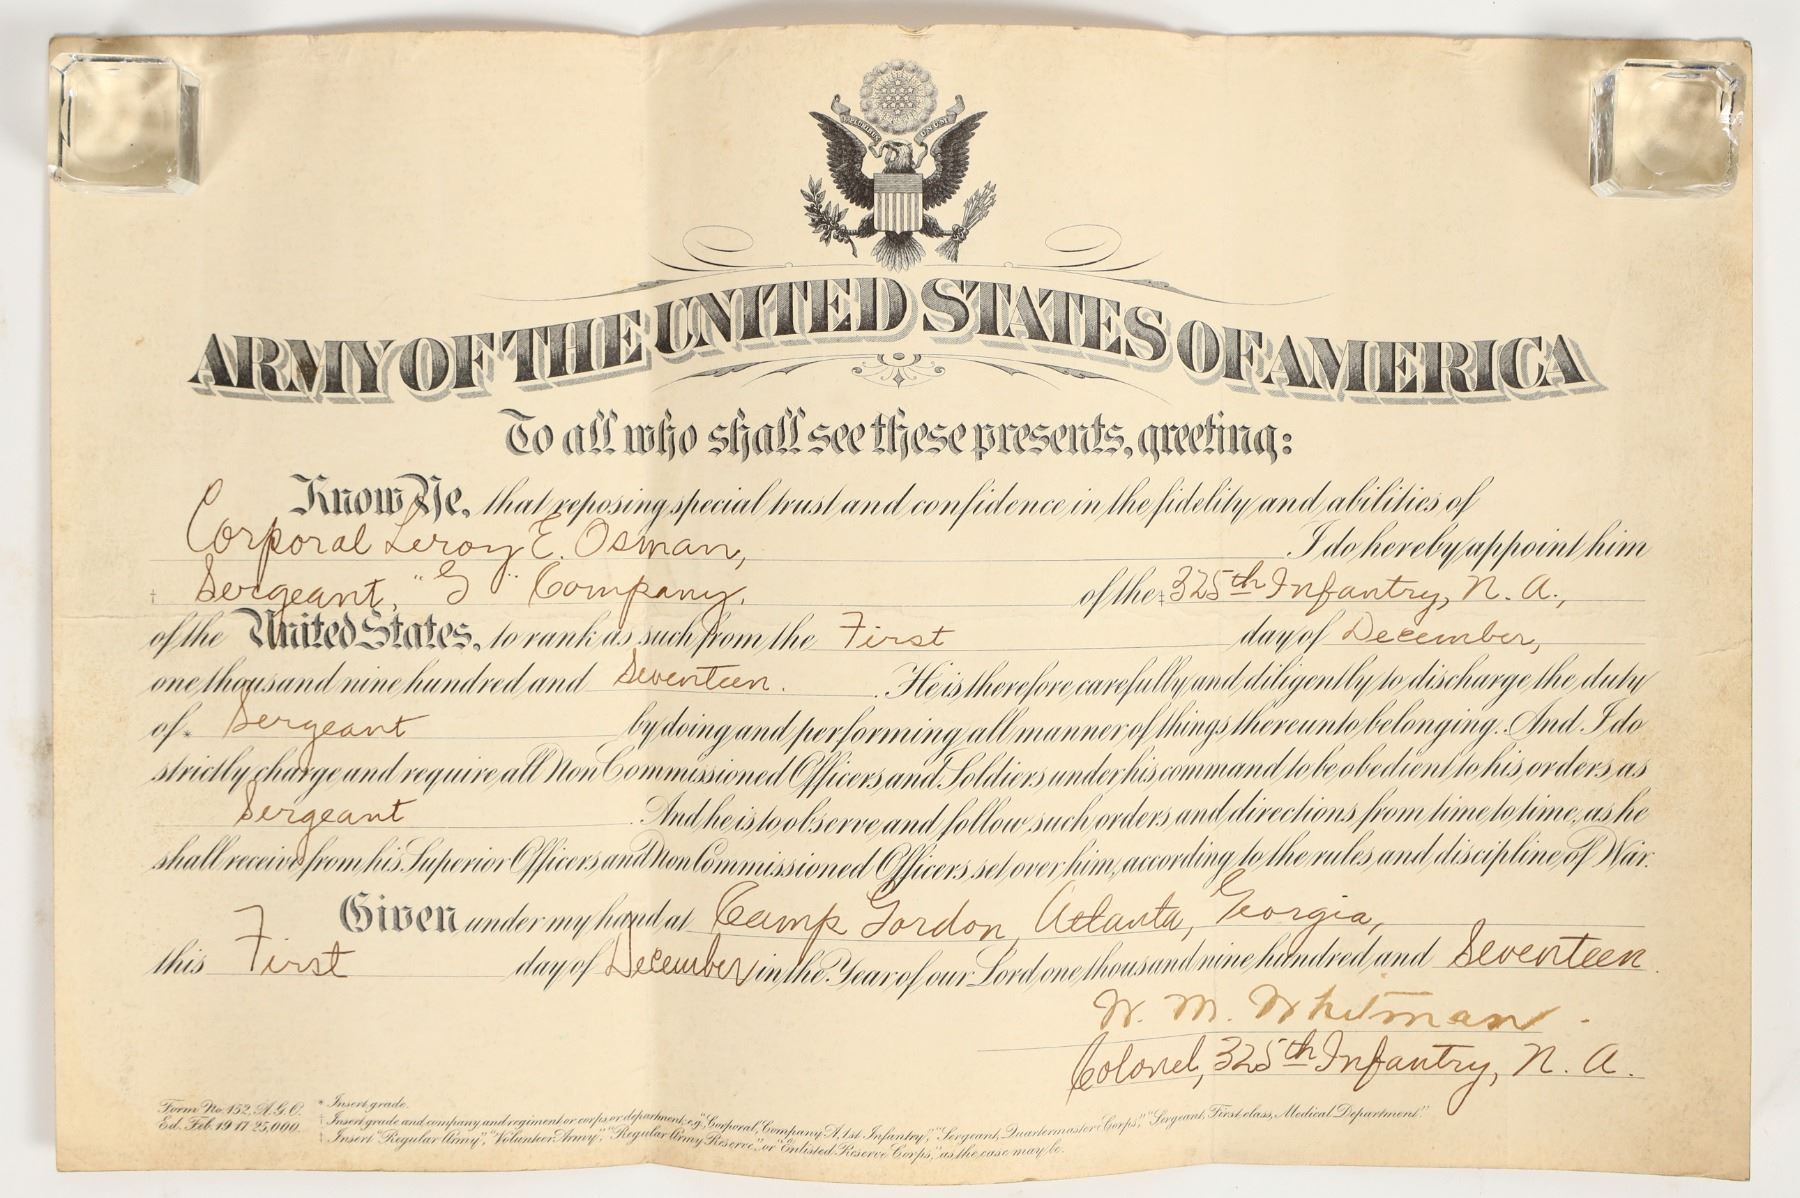 E PLURIBUS UNUM
ARMY OF THE UNITED STATES OF AMERICA
To all who shall see these presents, greeting:
Know Ye, that reposing special trust and confidence in the fidelity and abilities of
Corporal Leroy E. Osman, I do hereby appoint him
† Sergeant, "G" Company, of the ‡ 325th Infantry, N. A.,
of the United States, to rank as such from the First day of December,
one thousand nine hundred and Seventeen. He is therefore carefully and diligently to discharge the duty
of * Sergeant by doing and performing all manner of things thereunto belonging. And I do
strictly charge and require all Non Commissioned Officers and Soldiers under his command to be obedient to his orders as
Sergeant. And he is to observe and follow such orders and directions from time to time, as he
shall receive from his Superior Officers and Non Commissioned Officers set over him, according to the rules and discipline of War.
Given under my hand at Camp Gordon, Atlanta, Georgia,
this First day of December in the Year of our Lord one thousand nine hundred and Seventeen.
W. M. Whitman
Colonel, 325th Infantry, N. A.
Form No. 152, A.G.O.
Ed. Feb. 19 17 25,000.
* Insert grade.
† Insert grade and company and regiment or corps or department; e.g., "Corporal, Company A, 1st Infantry," "Sergeant, Quartermaster Corps," "Sergeant, First class, Medical Department."
‡ Insert "Regular Army", "Volunteer Army", "Regular Army Reserve", or "Enlisted Reserve Corps," as the case may be.